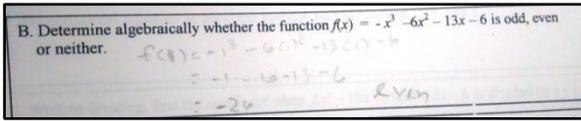 B. Determine algebraically whether the function f(x) = -x³ -6x² – 13x – 6 is odd, even
or neither. f(1) = -1³ - 6(1)² -13(1) -6
= -1 -6 -13 -6
= -26 even